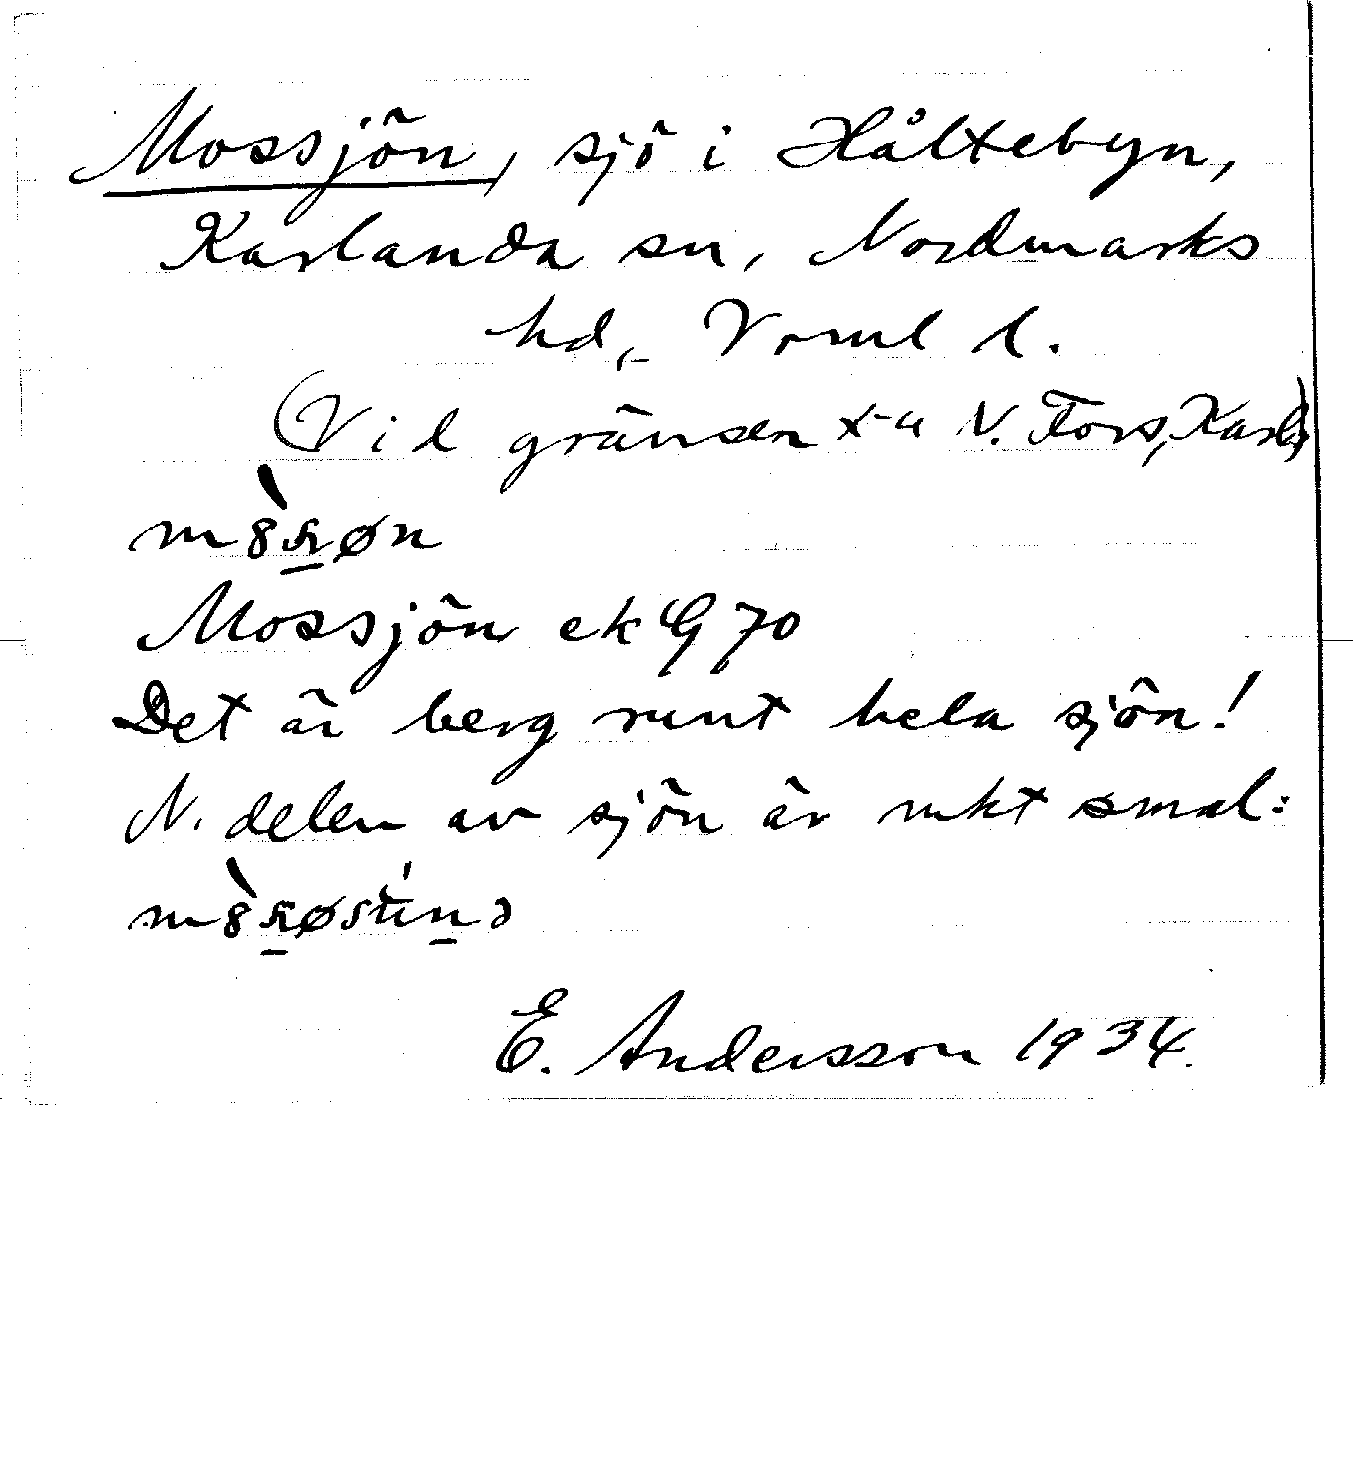 Mossjön, sjö i Håltebyn,
Karlanda sn, Nordmarks
hd, Vrml l.
(Vid gränsen t-a N. Fors, Karl.)
m8̀sjøn
Mossjön ek G 70
Det är berg runt hela sjön!
N. delen av sjön är mkt smal:
E. Andersson 1934.